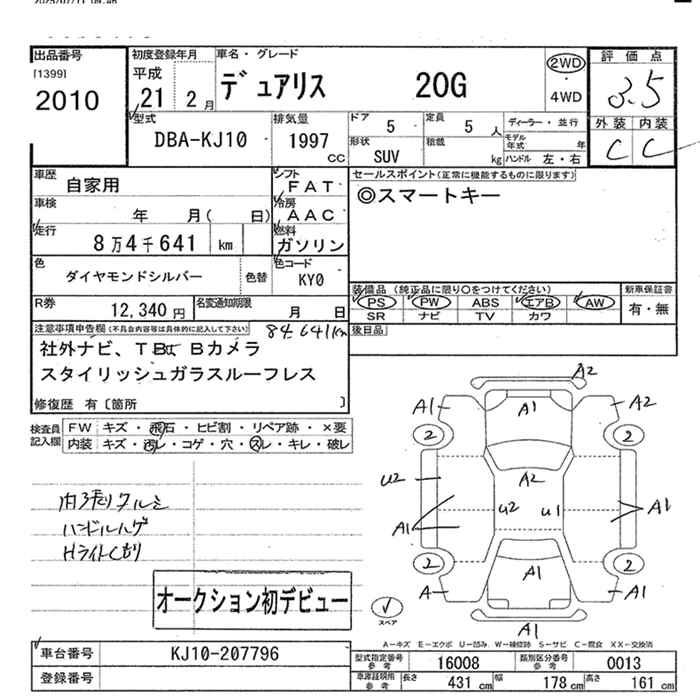 出品番号 初度登録年月 車名・グレード 評価点
[1399] 平成 デュアリス 20G 2WD 3.5
2010 21 2月 ・4WD
外装 内装
型式 排気量 ドア 5 定員 5人 ディーラー・並行 C C
DBA-KJ10 1997 モデル年式 年
cc 形状 SUV 積載 kg ハンドル 左・右
車歴 自家用 シフト FAT セールスポイント(正常に機能するものに限ります)
車検 年 月( 日) 冷房 AAC ◎スマートキー
走行 8万4千641 km 燃料 ガソリン
色 ダイヤモンドシルバー 色替 色コード KY0
装備品 (純正品に限り○をつけてください) 新車保証書
PS PW ABS エアB AW 有・無
SR ナビ TV カワ
R券 12,340円 名変通知期限 月 日
後日品
注意事項申告欄(不具合内容等は具体的に記入して下さい) 84,641km
社外ナビ、TB、Bカメラ
スタイリッシュガラスルーフレス
修復歴 有〔箇所 〕
検査員記入欄 FW キズ・飛石・ヒビ割・リペア跡・×要
内装 キズ・汚レ・コゲ・穴・スレ・キレ・破レ
内張りタルミ
ハンドルハゲ
Hライトくもり
オークション初デビュー
A2
A1 A1 A2
2 2
U2 A2
A1 U2 U1 A1
2 2
A A1 A1
スペア A1
A-キズ E-エクボ U-凹み W-補修跡 S-サビ C-腐食 XX-交換済
車台番号 KJ10-207796
型式指定番号参考 16008 類別区分番号参考 0013
登録番号
車庫証明用参考 長さ 431cm 幅 178cm 高さ 161cm